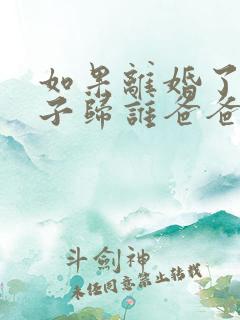 如果離婚了
子歸誰爸爸
斗劍神
未经同意禁止转载